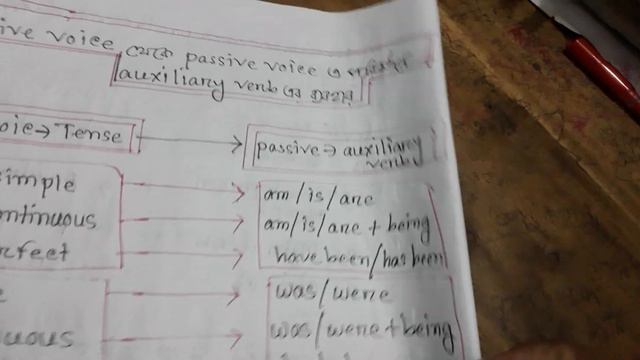 ive voice থেকে passive voice এ
auxiliary verb এর ব্যবহার
oie → Tense → passive → auxiliary verb
simple → am/is/are
ontinuous → am/is/are + being
rfect → have been/has been
e → was/were
uous → was/were + being